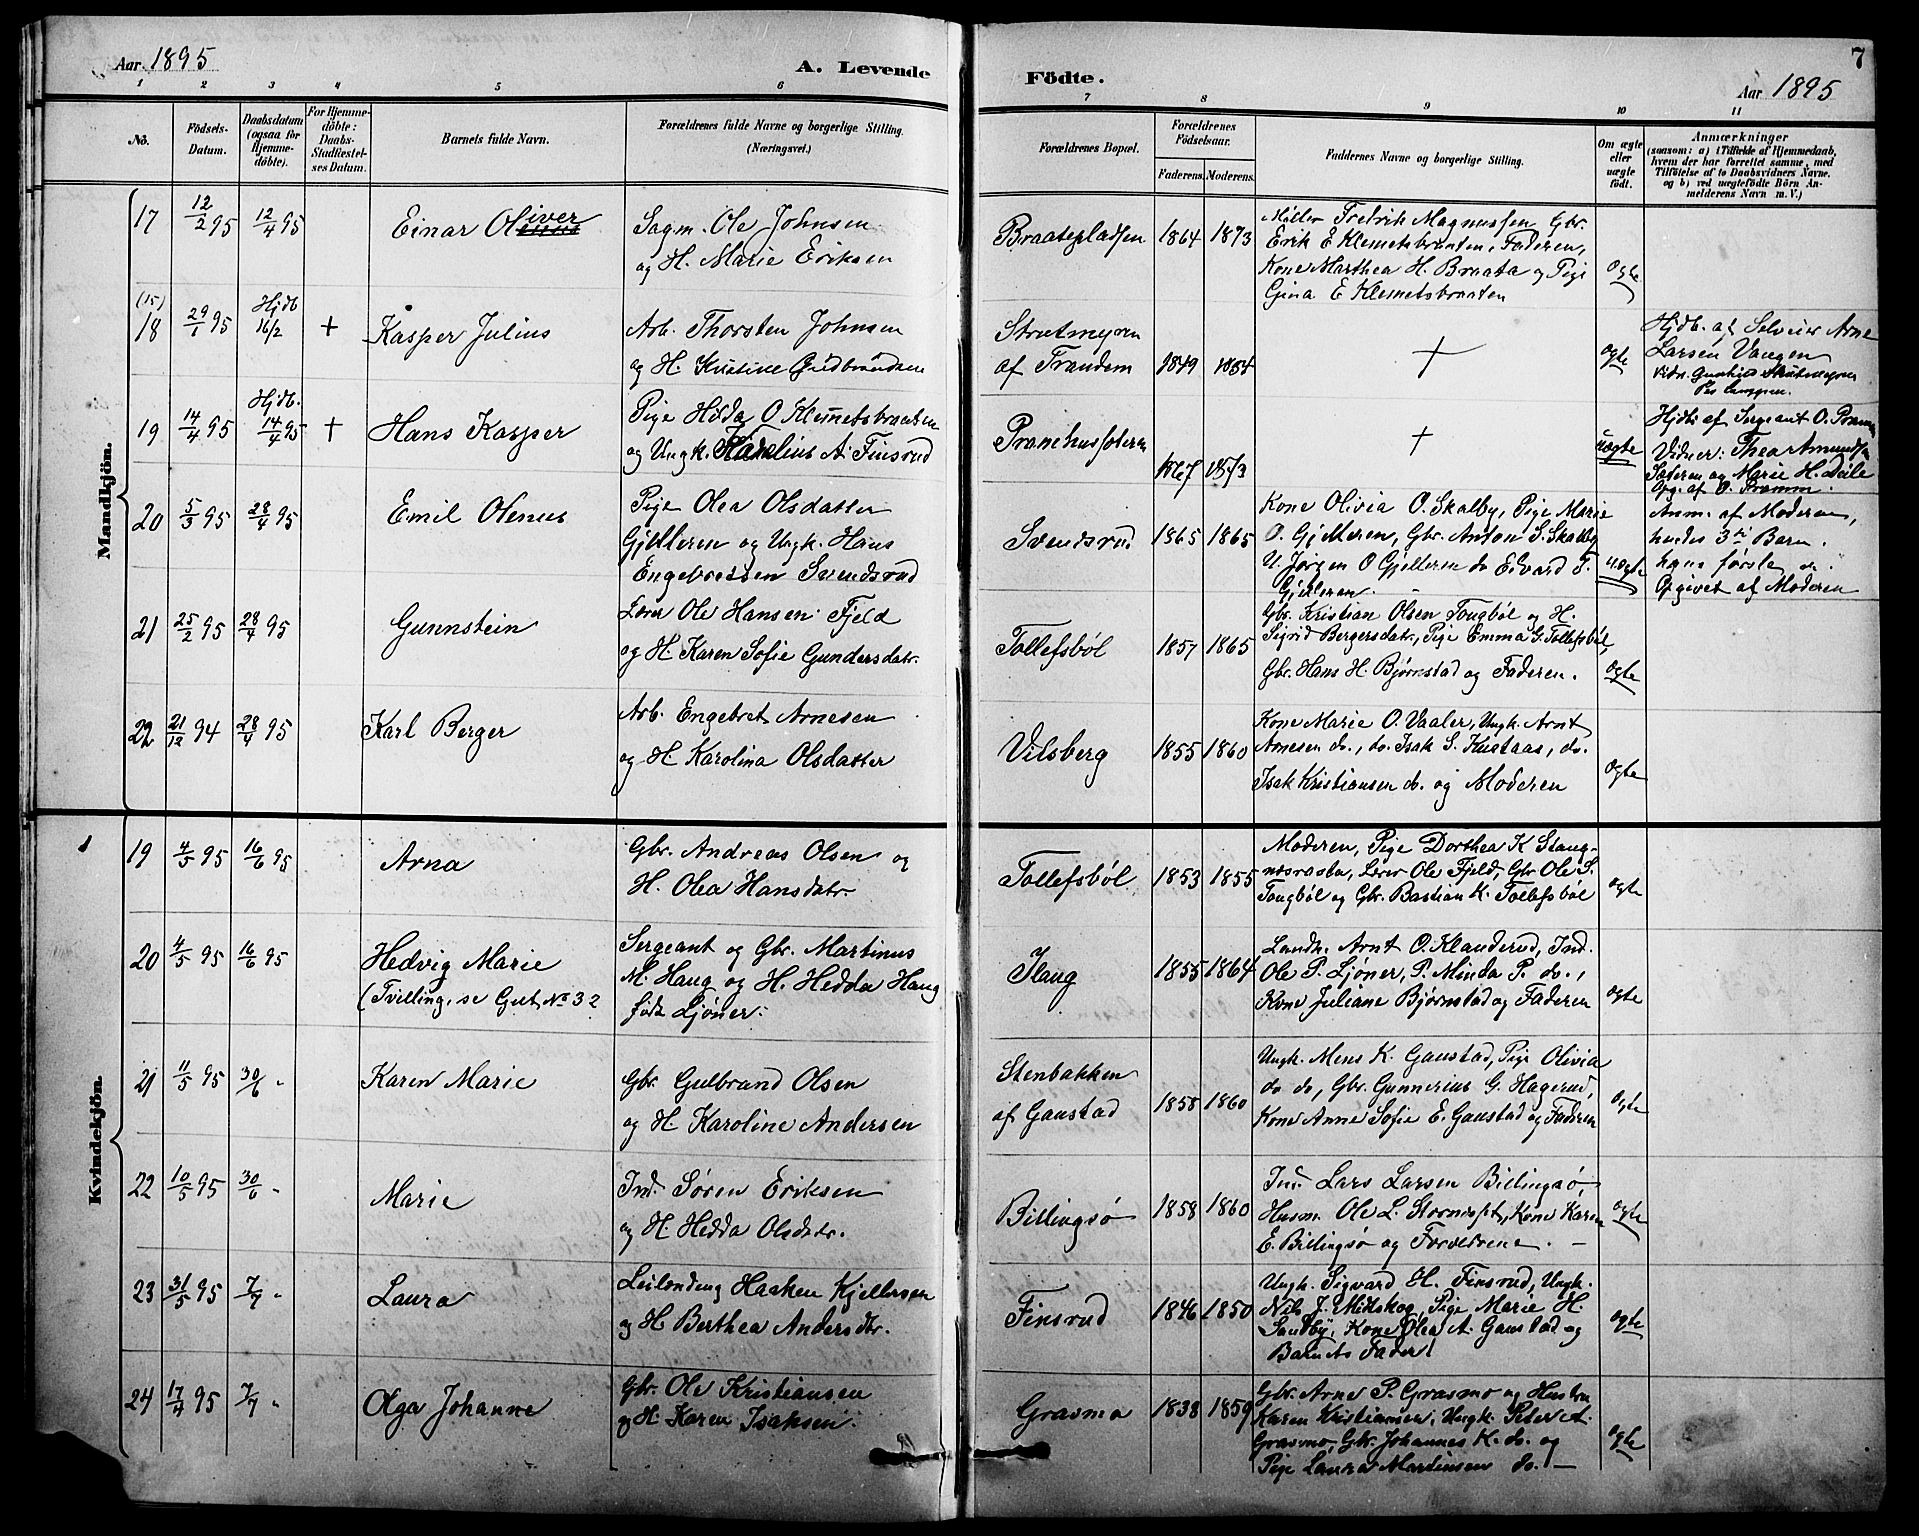 Aar 1895
A. Levende
1 2 3 4 5 6
No.
Födsels-
Datum.
Daabsdatum
(ogsaa for
Hjemme-
döbte).
For Hjemme-
döbte:
Daabs-
Stadfæstel-
ses Datum.
Barnets fulde Navn.
Forældrenes fulde Navne og borgerlige Stilling.
(Næringsvei.)
Mandkjön.
17 12/2 95 12/4 95
Einar Oliver
Sagm. Ole Johnsen
og H. Marie Eriksen
(15)
18 29/1 95 Hjdb 16/2 +
Kasper Julius
Arb. Thorsten Johnsen
og H. Kristine Gudbrandsen
19 14/4 95 Hjdb. 14/4 95 +
Hans Kasper
Pige Hilda O. Klemetsbraaten
og Ungk. Karelius A. Finsrud
20 5/3 95 28/4 95
Emil Olenus
Pige Olea Olsdatter
Gjelleren og Ungk. Hans
Engebretsen Svendsrud
21 25/2 95 28/4 95
Gunnstein
Lærer Ole Hansen Fjeld
og H. Karen Sofie Gundersdatr.
22 21/12 94 28/4 95
Karl Berger
Arb. Engebret Arnesen
og H. Karolina Olsdatter
Kvindekjön.
19 4/5 95 16/6 95
Arna
Gbr. Andreas Olsen og
H. Olea Hansdatr.
20 4/5 95 16/6 95
Hedvig Marie
(Tvilling, se Gut. No 32
Sergeant og Gbr. Martinus
M. Haug og H. Hedda Haug
født Ljøner.
21 11/5 95 30/6 "
Karen Marie
Gbr. Gulbrand Olsen
og H. Karoline Andersen
22 10/5 95 30/6 "
Marie
Ind. Søren Eriksen
og H. Hedda Olsdatr.
23 31/5 95 7/7 "
Laura
Leilending Haaken Kjellersen
og H. Berthea Andersdtr.
24 17/4 95 7/7 "
Olga Johanne
Gbr. Ole Kristiansen
og H. Karen Isaksen.
7
Födte.
Aar 1895
7 8 9 10 11
Forældrenes Bopæl.
Forældrenes
Födselsaar.
Faderens. Moderens.
Faddernes Navne og borgerlige Stilling.
Om ægte
eller
uægte
födt.
Anmærkninger
(saasom: a) i Tilfælde af Hjemmedaab,
hvem der har forrettet samme, med
Tilföielse af to Daabsvidners Navne.
og b) ved uægtefödte Börn An-
melderens Navn m. V.)
Braatepladsen 1864 1873
Møller Fredrik Magnussen, Gbr.
Erik E. Klemetsbraaten, Faderen,
Kone Marthea H. Braata og Pige
Gina E. Klemetsbraaten
ægte
af Trandem 1849 1854
+
ægte
Hjdb. af Selveier Arne
Larsen Vangen
1867 1873
+
uægte
Hjdb af Sergeant O. Pramm
Vidner: Thea Amundsen
Sæteren og Marie H. Deile
Opg. af O. Pramm.
Svendsrud 1865 1865
Kone Olivia O. Skalby, Pige Marie
O. Gjelleren, Gbr. Anton S. Skalby
U. Jørgen O Gjelleren do Edvard T.
Gjelleren.
uægte
Anm. af Moderen,
hendes 3die Barn.
hans første
Opgivet af Moderen
Tollefsböl 1857 1865
Gbr. Kristian Olsen Tougböl og H.
Sigrid Bergersdatr., Pige Emma G. Tollefsböl,
Gbr. Hans H. Bjørnstad og Faderen.
ægte
Vilsberg 1855 1860
Kone Marie O. Vaaler, Ungk. Arnt
Arnesen do., do. Isak S. Kustaas, do.
Isak Kristiansen do. og Moderen
ægte
Tollefsböl 1853 1855
Moderen, Pige Dorthea K Stang-
næsrasta, Lærer Ole Fjeld, Gbr Ole S.
Tougböl og Gbr. Bastian K. Tollefsböl
ægte
Haug 1855 1864
Landh. Arnt O. Klanderud, Ind.
Ole P. Ljøner, P. Minda P. do.,
Kone Juliane Bjørnstad og Faderen
ægte
Stenbakken
af Gaustad 1858 1860
Ungk. Mens K. Gaustad, Pige Olivia
do do, Gbr. Gunnerius G. Hagerud,
Kone Anne Sofie E. Gaustad og Faderen
ægte
Billingsø 1858 1860
Ind. Lars Larsen Billingsø,
Husm. Ole L. Stornæset, Kone Karen
E. Billingsø og Forældrene. —
ægte
Finsrud 1846 1850
Ungk. Sigvard H. Finsrud, Ungk.
Nils J. Midskog, Pige Marie H.
Sandby, Kone Olea A. Gaustad og
Barnets Fader.
ægte
Grasmo 1838 1859
Gbr. Arne P. Grasmo og Hustru
Karen Kristiansen, Ungk. Peter A.
Grasmo, Gbr. Johannes K. do. og
Pige Laura Martinsen do. —
ægte